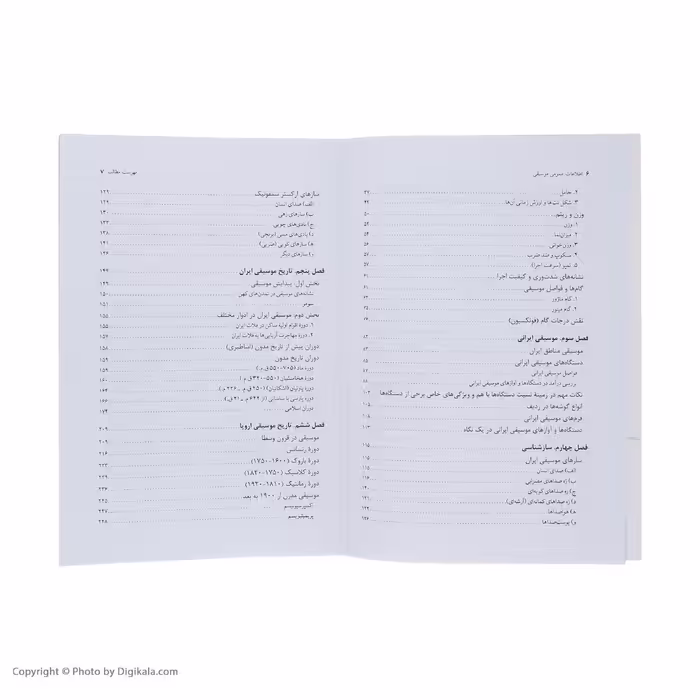 ۶ اطلاعات عمومی موسیقی
۲. حامل
۳. شکل نت‌ها و ارزش زمانی آن‌ها
وزن و ریتم ۵۰
۱. وزن
۲. میزان‌نما ۵۴
۳. وزن‌خوانی ۵۶
۴. سنکوپ و ضد ضرب ۵۷
۵. تمپو (سرعت اجرا) ۵۷
نشانه‌های شدت‌وری و کیفیت اجرا
گام‌ها و فواصل موسیقی
۱. گام ماژور
۲. گام مینور
نقش درجات گام (فونکسیون)
فصل سوم. موسیقی ایرانی ۸۲
موسیقی مناطق ایران
دستگاه‌های موسیقی ایرانی ۸۵
فواصل موسیقی ایرانی
بررسی درآمد دستگاه‌ها و آوازهای موسیقی ایرانی
نکات مهم در زمینهٔ نسبت دستگاه‌ها با هم و ویژگی‌های خاص برخی از دستگاه‌ها ۱۰۲
انواع گوشه‌ها در ردیف ۱۰۵
فرم‌های موسیقی ایرانی ۱۰۸
دستگاه‌ها و آوازهای موسیقی ایرانی در یک نگاه ۱۱۳
فصل چهارم. سازشناسی ۱۱۵
سازهای موسیقی ایران ۱۱۵
الف) صدای انسان ۱۱۵
ب) زه صداهای مضرابی ۱۱۶
ج) زه صداهای کوبه‌ای
د) زه صداهای کمانه‌ای (آرشه‌ای)
ه) هواصداها
و) پوست‌صداها
فهرست مطالب ۷
سازهای ارکستر سمفونیک ۱۲۹
الف) صدای انسان ۱۲۹
ب) سازهای زهی
ج) بادی‌های چوبی
د) بادی‌های مسی (برنجی) ۱۳۸
ه) سازهای کوبی (ضربی) ۱۴۱
و) سازهای دیگر
فصل پنجم. تاریخ موسیقی ایران
بخش اول: پیدایش موسیقی ۱۴۹
نشانه‌های موسیقی در تمدن‌های کهن ۱۵۰
سومر ۱۵۱
بخش دوم: موسیقی ایران در ادوار مختلف ۱۵۵
۱. دورهٔ اقوام اولیهٔ ساکن در فلات ایران ۱۵۵
۲. دورهٔ مهاجرت آریایی‌ها به فلات ایران
دوران پیش از تاریخ مدون (اساطیری) ۱۵۸
دوران تاریخ مدون ۱۵۹
دورهٔ ماد (۷۰۵-۵۵۰ ق.م.) ۱۵۹
دورهٔ هخامنشیان (۵۵۰-۳۳۰ ق.م.) ۱۶۰
دورهٔ پارتیان (اشکانیان)
دورهٔ پارسی یا ساسانی
دوران اسلامی ۱۷۴
فصل ششم. تاریخ موسیقی اروپا ۲۰۹
موسیقی در قرون وسطا ۲۰۹
دورهٔ رنسانس ۲۱۶
دورهٔ باروک (۱۶۰۰-۱۷۵۰)
دورهٔ کلاسیک (۱۷۵۰-۱۸۲۰)
دورهٔ رمانتیک (۱۸۱۰-۱۹۲۰)
موسیقی مدرن از ۱۹۰۰ به بعد ۲۳۵
اکسپرسیونیسم ۲۳۷
پریمیتیویسم ۲۳۸
Copyright © Photo by Digikala.com